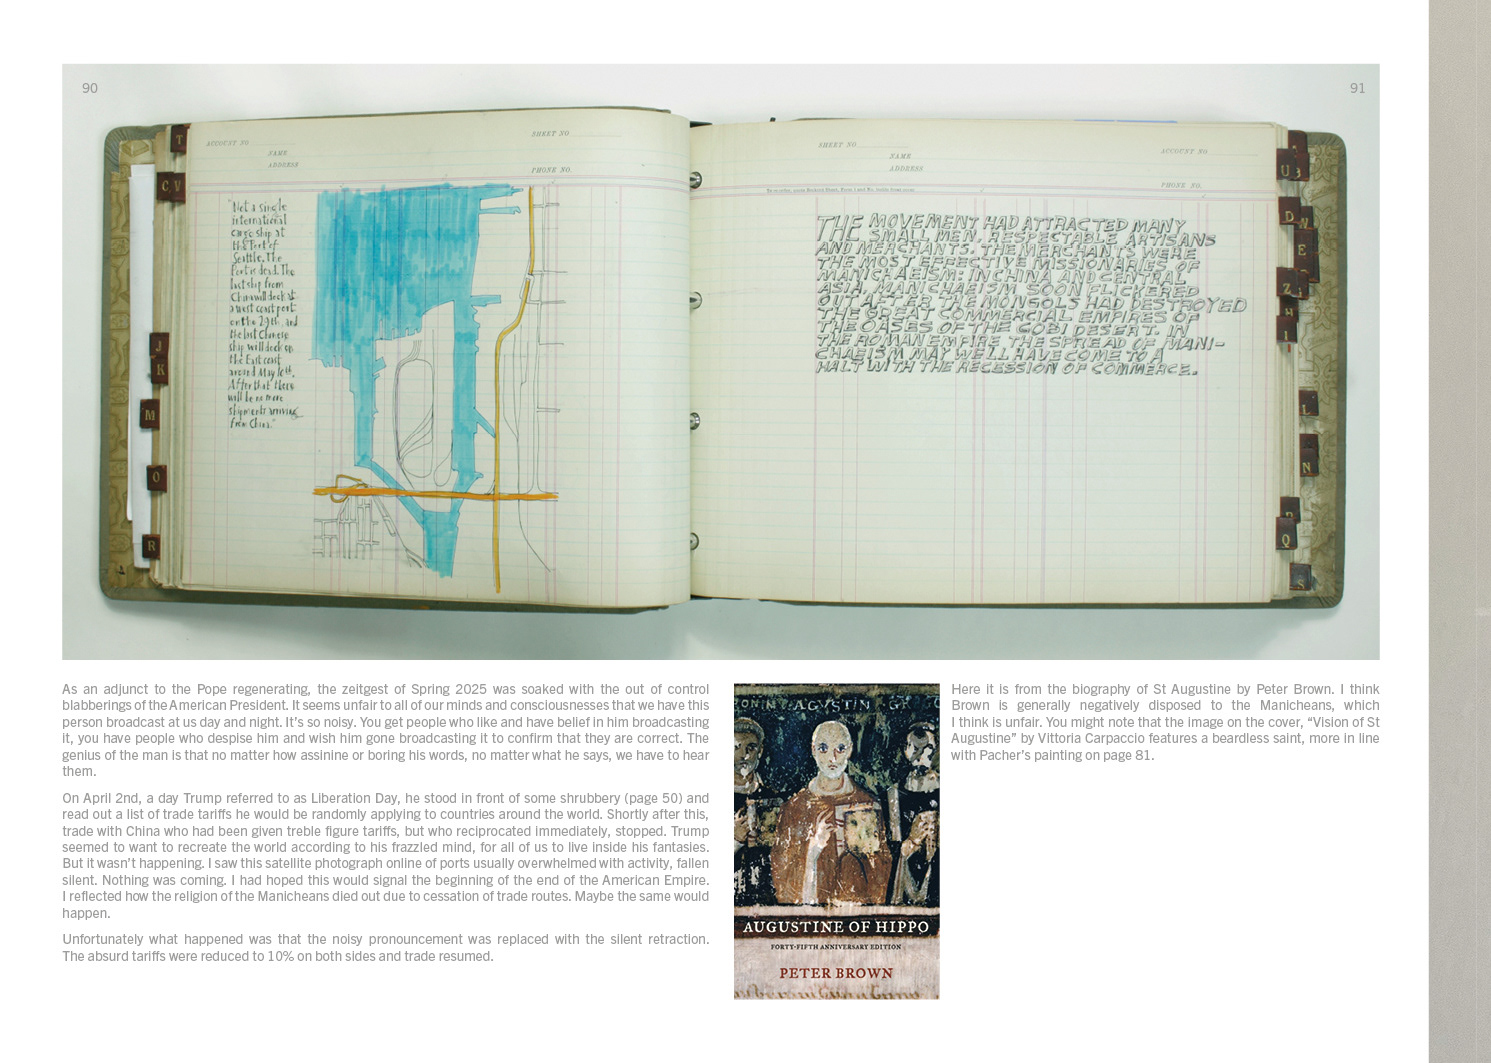 90
91
T
C V
J
K
M
O
R
ACCOUNT NO
SHEET NO
NAME
ADDRESS
PHONE NO.
"Not a single
international
cargo ship at
the Port of
Seattle. The
Port is dead. The
last ship from
China will dock at
a west coast port
on the 29th, and
the last Chinese
ship will dock on
the East coast
around May 10th.
After that there
will be no more
shipments arriving
from China."
SHEET NO
NAME
ADDRESS
ACCOUNT NO
PHONE NO.
THE MOVEMENT HAD ATTRACTED MANY
SMALL MEN, RESPECTABLE ARTISANS
AND MERCHANTS. THE MERCHANTS WERE
THE MOST EFFECTIVE MISSIONARIES OF
MANICHAEISM: IN CHINA AND CENTRAL
ASIA, MANICHAEISM SOON FLICKERED
OUT AFTER THE MONGOLS HAD DESTROYED
THE GREAT COMMERCIAL EMPIRES OF
THE OASES OF THE GOBI DESERT. IN
THE ROMAN EMPIRE THE SPREAD OF MANI-
CHAEISM MAY WELL HAVE COME TO A
HALT WITH THE RECESSION OF COMMERCE.
U
D
W
E
Z
H
I
L
N
P
Q
S
As an adjunct to the Pope regenerating, the zeitgest of Spring 2025 was soaked with the out of control
blabberings of the American President. It seems unfair to all of our minds and consciousnesses that we have this
person broadcast at us day and night. It's so noisy. You get people who like and have belief in him broadcasting
it, you have people who despise him and wish him gone broadcasting it to confirm that they are correct. The
genius of the man is that no matter how assinine or boring his words, no matter what he says, we have to hear
them.
On April 2nd, a day Trump referred to as Liberation Day, he stood in front of some shrubbery (page 50) and
read out a list of trade tariffs he would be randomly applying to countries around the world. Shortly after this,
trade with China who had been given treble figure tariffs, but who reciprocated immediately, stopped. Trump
seemed to want to recreate the world according to his frazzled mind, for all of us to live inside his fantasies.
But it wasn't happening. I saw this satellite photograph online of ports usually overwhelmed with activity, fallen
silent. Nothing was coming. I had hoped this would signal the beginning of the end of the American Empire.
I reflected how the religion of the Manicheans died out due to cessation of trade routes. Maybe the same would
happen.
Unfortunately what happened was that the noisy pronouncement was replaced with the silent retraction.
The absurd tariffs were reduced to 10% on both sides and trade resumed.
AGVSTIN
AUGUSTINE OF HIPPO
FORTY-FIFTH ANNIVERSARY EDITION
PETER BROWN
Here it is from the biography of St Augustine by Peter Brown. I think
Brown is generally negatively disposed to the Manicheans, which
I think is unfair. You might note that the image on the cover, "Vision of St
Augustine" by Vittoria Carpaccio features a beardless saint, more in line
with Pacher's painting on page 81.